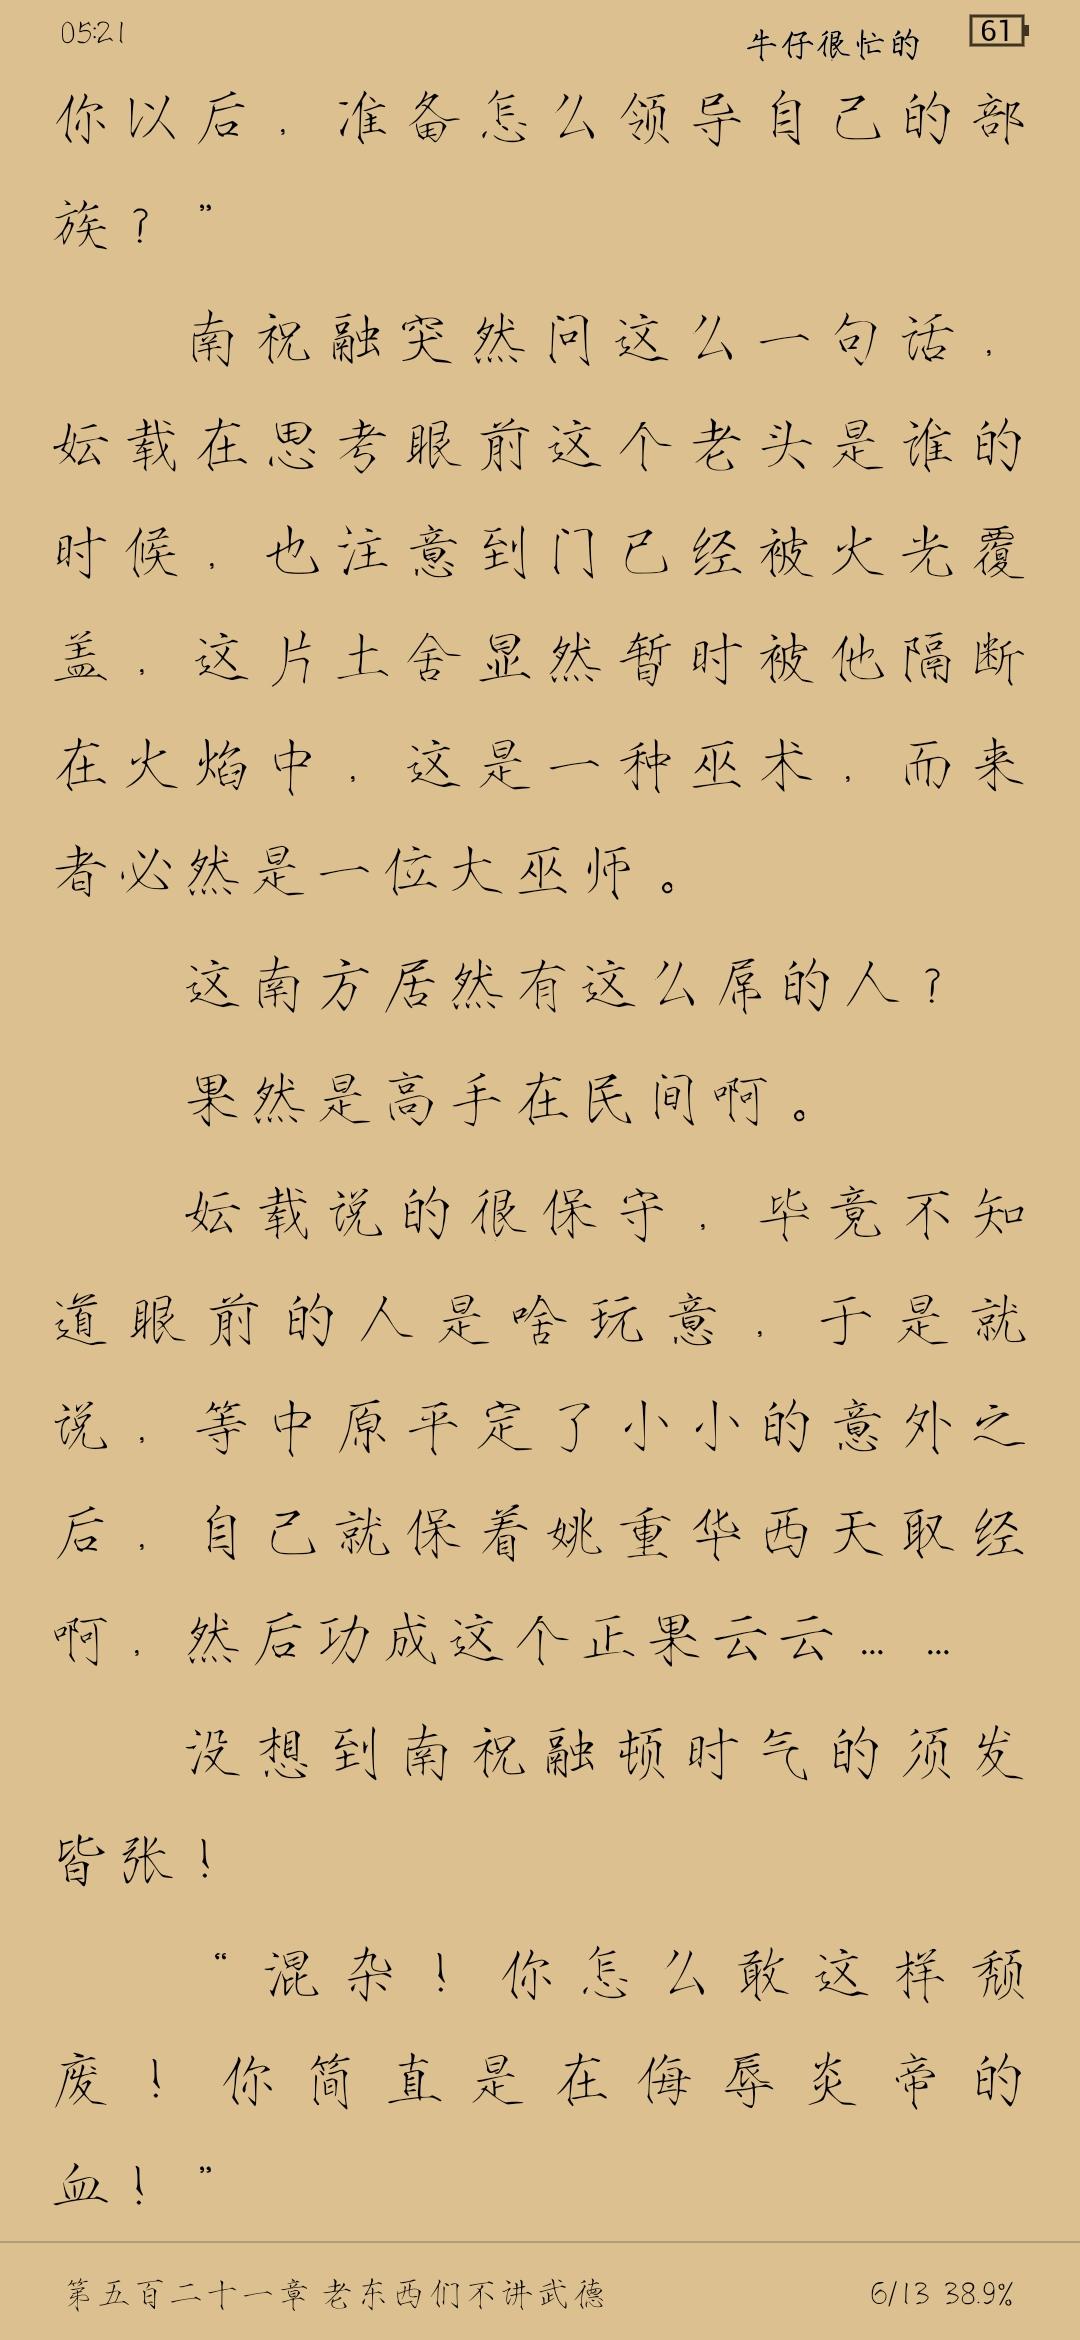 05:21
牛仔很忙的
61
你以后，准备怎么领导自己的部
族？”
南祝融突然问这么一句话，
妘载在思考眼前这个老头是谁的
时候，也注意到门已经被火光覆
盖，这片土舍显然暂时被他隔断
在火焰中，这是一种巫术，而来
者必然是一位大巫师。
这南方居然有这么屌的人？
果然是高手在民间啊。
妘载说的很保守，毕竟不知
道眼前的人是啥玩意，于是就
说，等中原平定了小小的意外之
后，自己就保着姚重华西天取经
啊，然后功成这个正果云云……
没想到南祝融顿时气的须发
皆张！
“混杂！你怎么敢这样颓
废！你简直是在侮辱炎帝的
血！”
第五百二十一章 老东西们不讲武德
6/13 38.9%